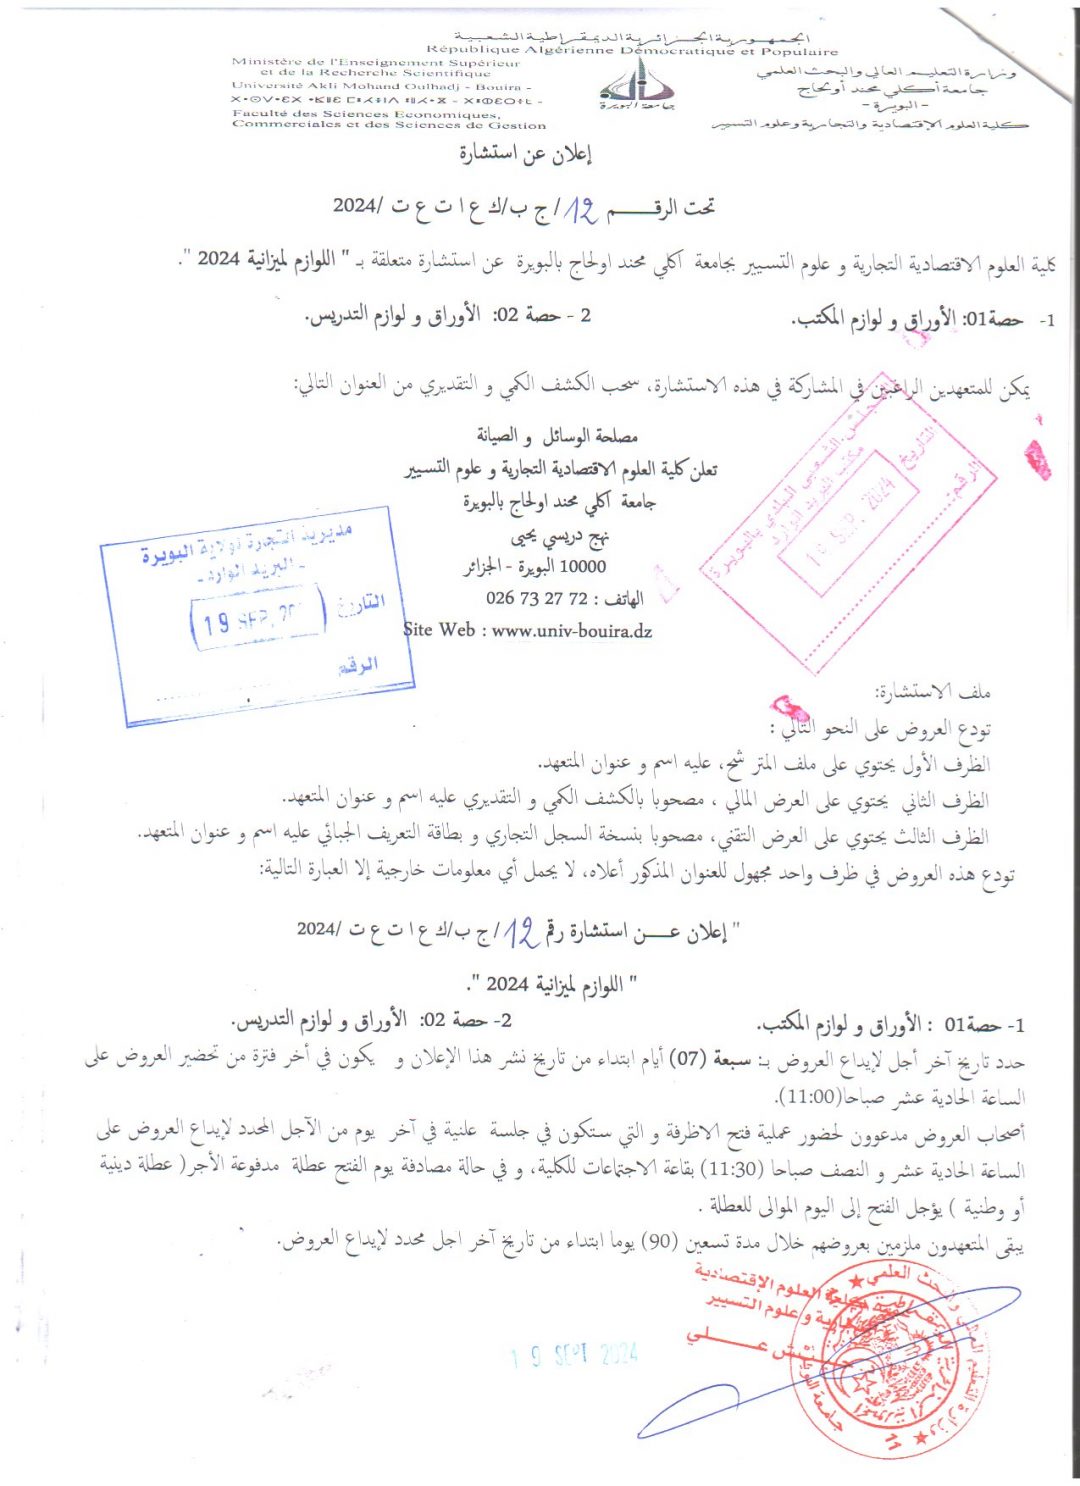 الجمهورية الجزائرية الديمقراطية الشعبية
République Algérienne Démocratique et Populaire
Ministère de l'Enseignement Supérieur
et de la Recherche Scientifique
Université Akli Mohand Oulhadj - Bouira -
Faculté des Sciences Economiques,
Commerciales et des Sciences de Gestion
جامعة البويرة
وزارة التعليم العالي والبحث العلمي
جامعة أكلي محند أولحاج
- البويرة -
كلية العلوم الإقتصادية والتجارية وعلوم التسيير
إعلان عن استشارة
تحت الرقـــــم 12/ ج ب/ك ع ا ت ع ت /2024
كلية العلوم الاقتصادية التجارية و علوم التسيير بجامعة اكلي محند اولحاج بالبويرة عن استشارة متعلقة بـ " اللوازم لميزانية 2024 ".
1- حصة01: الأوراق و لوازم المكتب. 2 - حصة 02: الأوراق و لوازم التدريس.
يمكن للمتعهدين الراغبين في المشاركة في هذه الاستشارة، سحب الكشف الكمي و التقديري من العنوان التالي:
مصلحة الوسائل و الصيانة
تعلن كلية العلوم الاقتصادية التجارية و علوم التسيير
جامعة اكلي محند اولحاج بالبويرة
نهج دريسي يحيى
10000 البويرة - الجزائر
الهاتف : 72 27 73 026
Site Web : www.univ-bouira.dz
المجلس الشعبي البلدي بالبويرة
مكتب البريد الوارد
التاريخ
10 SEP. 2024
الرقم:
مديرية التجارة لولاية البويرة
- البريد الوارد -
التاريخ
19 SEP. 20
الرقم
ملف الاستشارة:
تودع العروض على النحو التالي :
الظرف الأول يحتوي على ملف المتر شح، عليه اسم و عنوان المتعهد.
الظرف الثاني يحتوي على العرض المالي ، مصحوبا بالكشف الكمي و التقديري عليه اسم و عنوان المتعهد.
الظرف الثالث يحتوي على العرض التقني، مصحوبا بنسخة السجل التجاري و بطاقة التعريف الجبائي عليه اسم و عنوان المتعهد.
تودع هذه العروض في ظرف واحد مجهول للعنوان المذكور أعلاه، لا يحمل أي معلومات خارجية إلا العبارة التالية:
" إعلان عـــن استشارة رقم 12/ ج ب/ك ع ا ت ع ت /2024
" اللوازم لميزانية 2024 ".
1- حصة01 : الأوراق و لوازم المكتب. 2- حصة 02: الأوراق و لوازم التدريس.
حدد تاريخ آخر أجل لإيداع العروض بـ: سبعة (07) أيام ابتداء من تاريخ نشر هذا الإعلان و يكون في أخر فترة من تحضير العروض على
الساعة الحادية عشر صباحا(11:00).
أصحاب العروض مدعوون لحضور عملية فتح الاظرفة و التي ستكون في جلسة علنية في آخر يوم من الآجل المحدد لإيداع العروض على
الساعة الحادية عشر و النصف صباحا (11:30) بقاعة الاجتماعات للكلية، و في حالة مصادفة يوم الفتح عطلة مدفوعة الأجر( عطلة دينية
أو وطنية ) يؤجل الفتح إلى اليوم الموالى للعطلة .
يبقى المتعهدون ملزمين بعروضهم خلال مدة تسعين (90) يوما ابتداء من تاريخ آخر اجل محدد لإيداع العروض.
كلية العلوم الإقتصادية
وعلوم التسيير
علي
19 SEPT 2024
جامعة البويرة